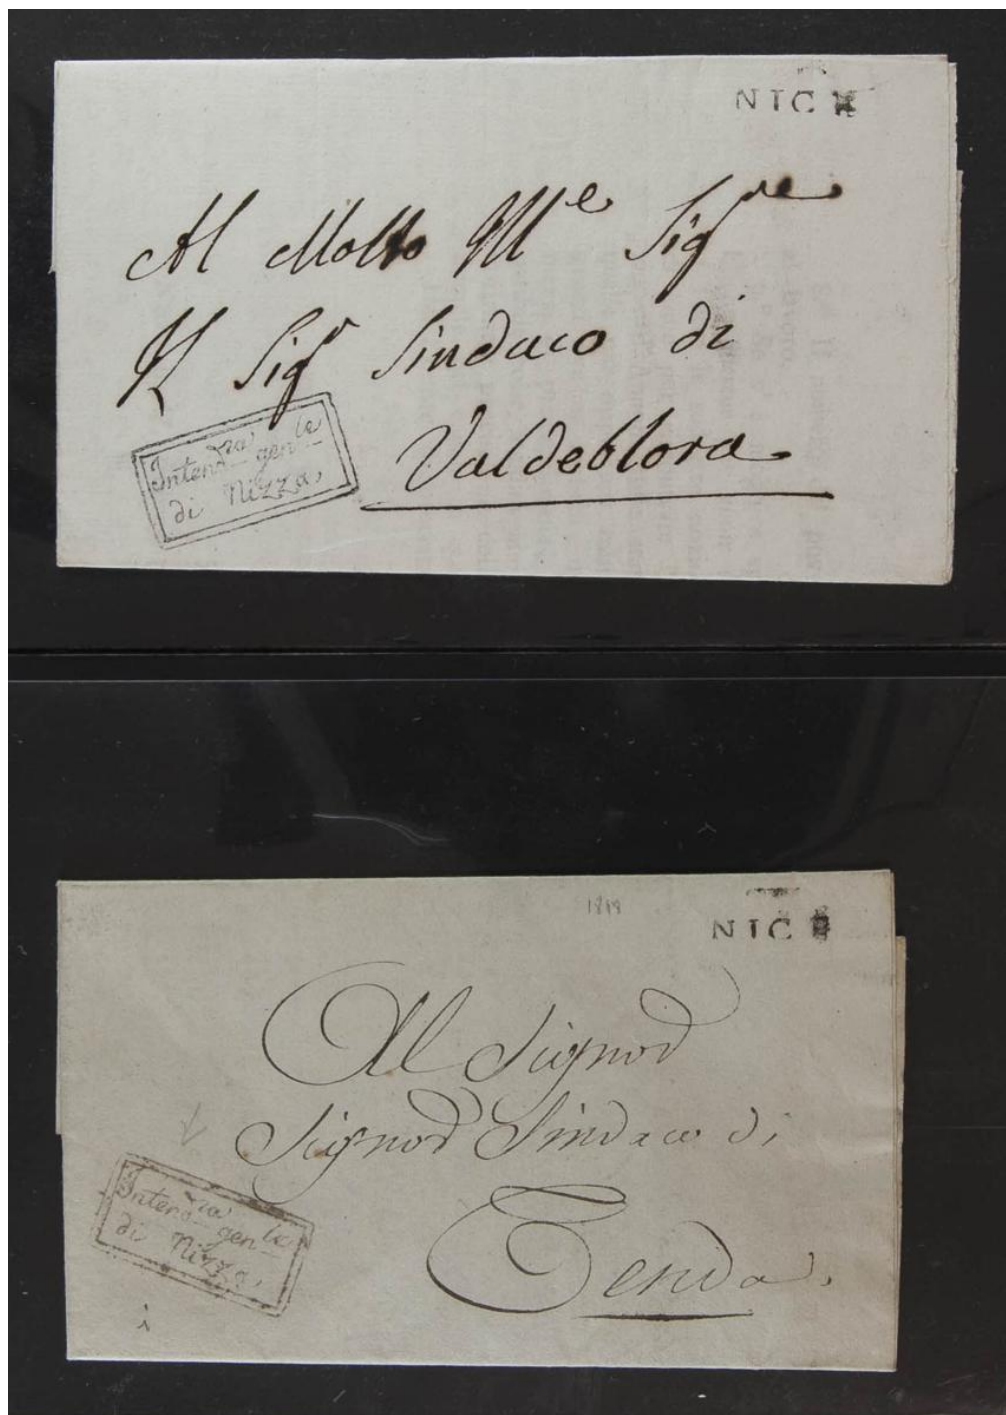 NIC
Al Molto M.e Sig.re
Il Sig.r Sindaco di
Valdeblora
Intend.ra gen.le
di Nizza.
1819
NIC
Al Signor
Signor Sindaco di
Tenda.
Intend.ra gen.le
di Nizza.